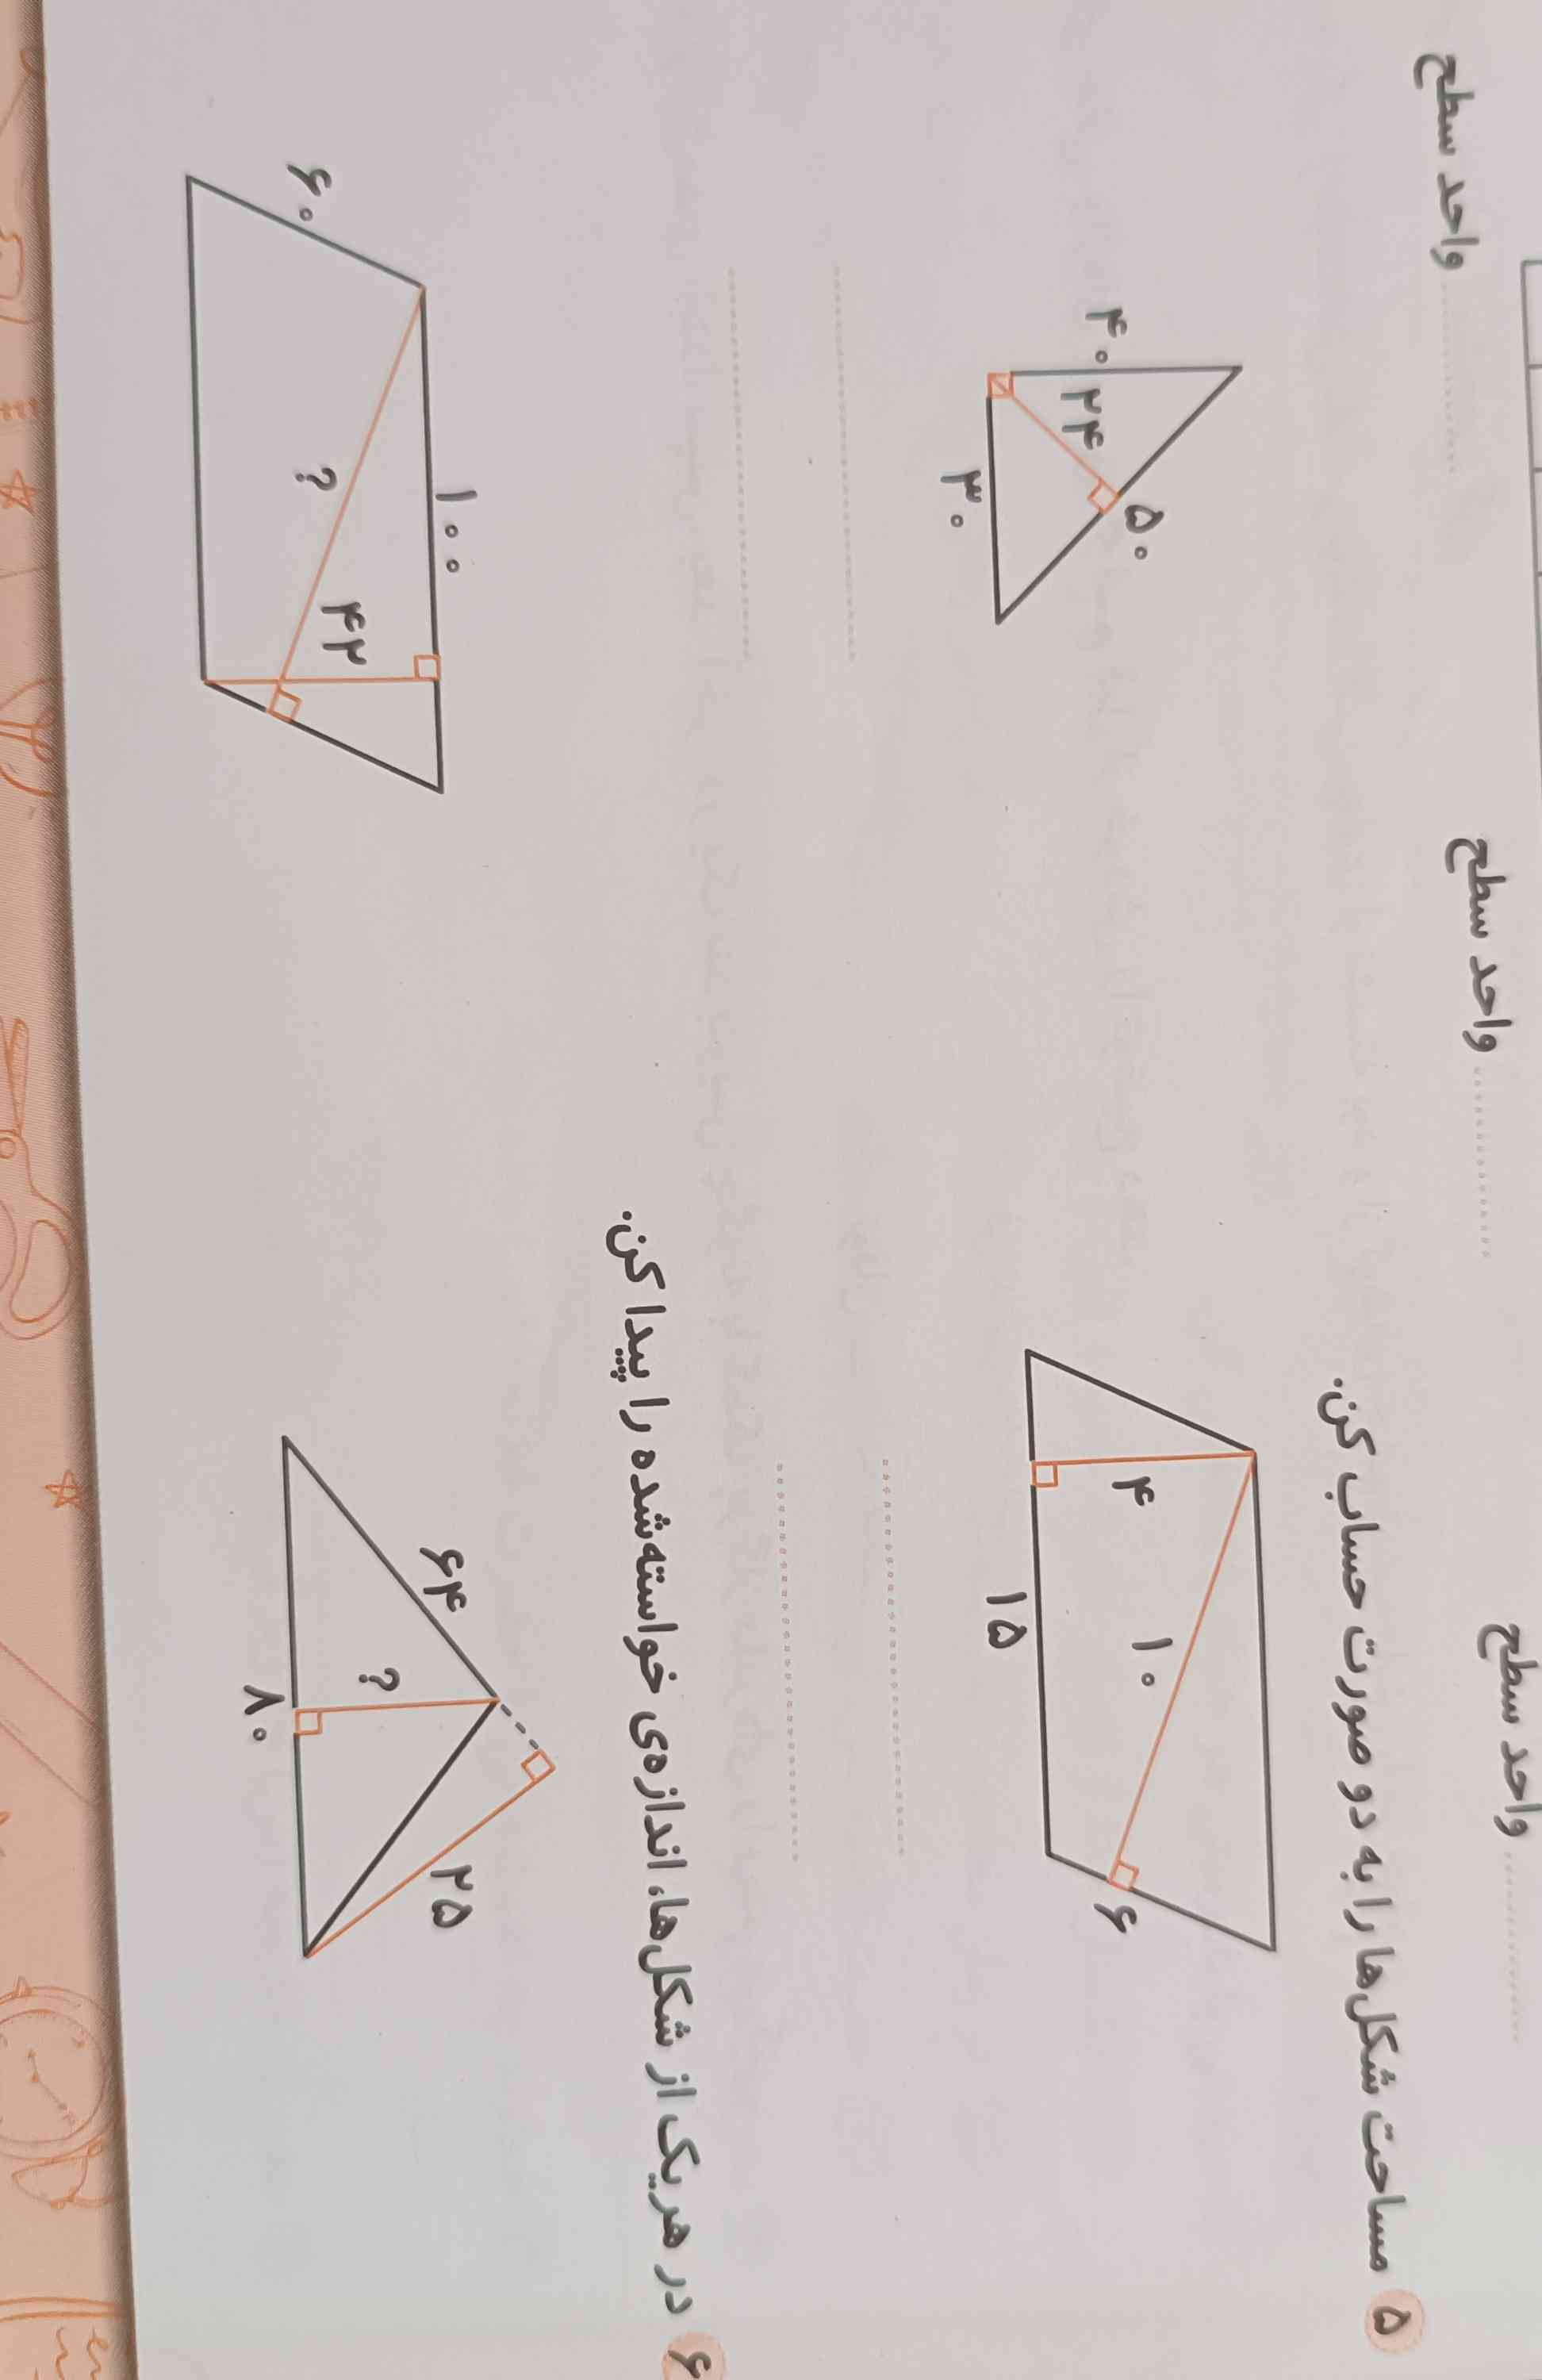 واحد سطح ............ واحد سطح ............ واحد سطح ............
۵ مساحت شکل‌ها را به دو صورت حساب کن.
۵۰
۴۰
۲۴
۳۰
۴
۱۰
۶
۱۵
۶ در هر یک از شکل‌ها، اندازه‌ی خواسته‌شده را پیدا کن.
۱۰۰
۶۰
۴۲
?
۶۴
۲۵
?
۸۰